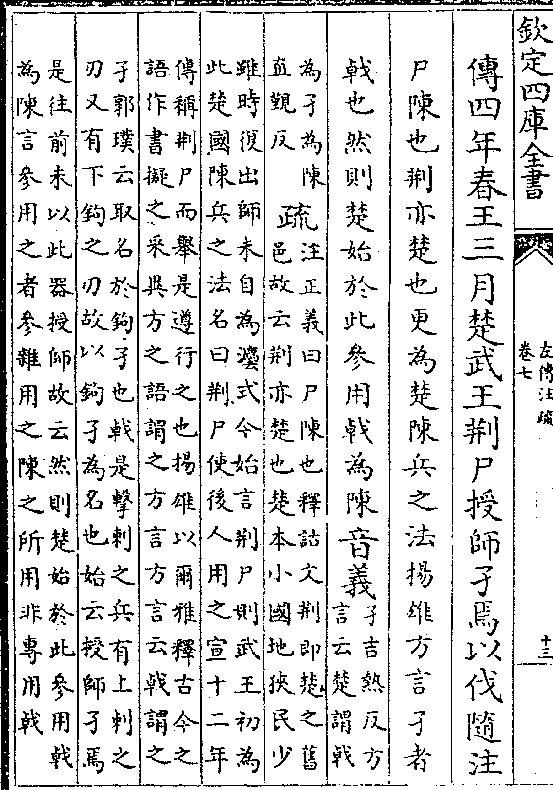 欽定四庫全書
左傳注疏
卷七
十三
傳四年春王三月楚武王荆尸授師孑焉以伐隨注
尸陳也荆亦楚也更為楚陳兵之法揚雄方言孑者
戟也然則楚始於此參用戟為陳音義
孑吉熱反方
言云楚謂戟
為孑為陳
直覲反
疏
注正義曰尸陳也釋詁文荆即楚之舊
邑故云荆亦楚也楚本小國地狹民少
雖時復出師未自為灋式今始言荆尸則武王初為
此楚國陳兵之法名曰荆尸使後人用之宣十二年
傳稱荆尸而舉是遵行之也揚雄以爾雅釋古今之
語作書擬之采異方之語謂之方言方言云戟謂之
孑郭璞云取名於鉤孑也戟是擊刺之兵有上刺之
刃又有下鉤之刃故以鉤孑為名也始云授師孑焉
是往前未以此器授師故云然則楚始於此參用戟
為陳言參用之者參雜用之陳之所用非專用戟